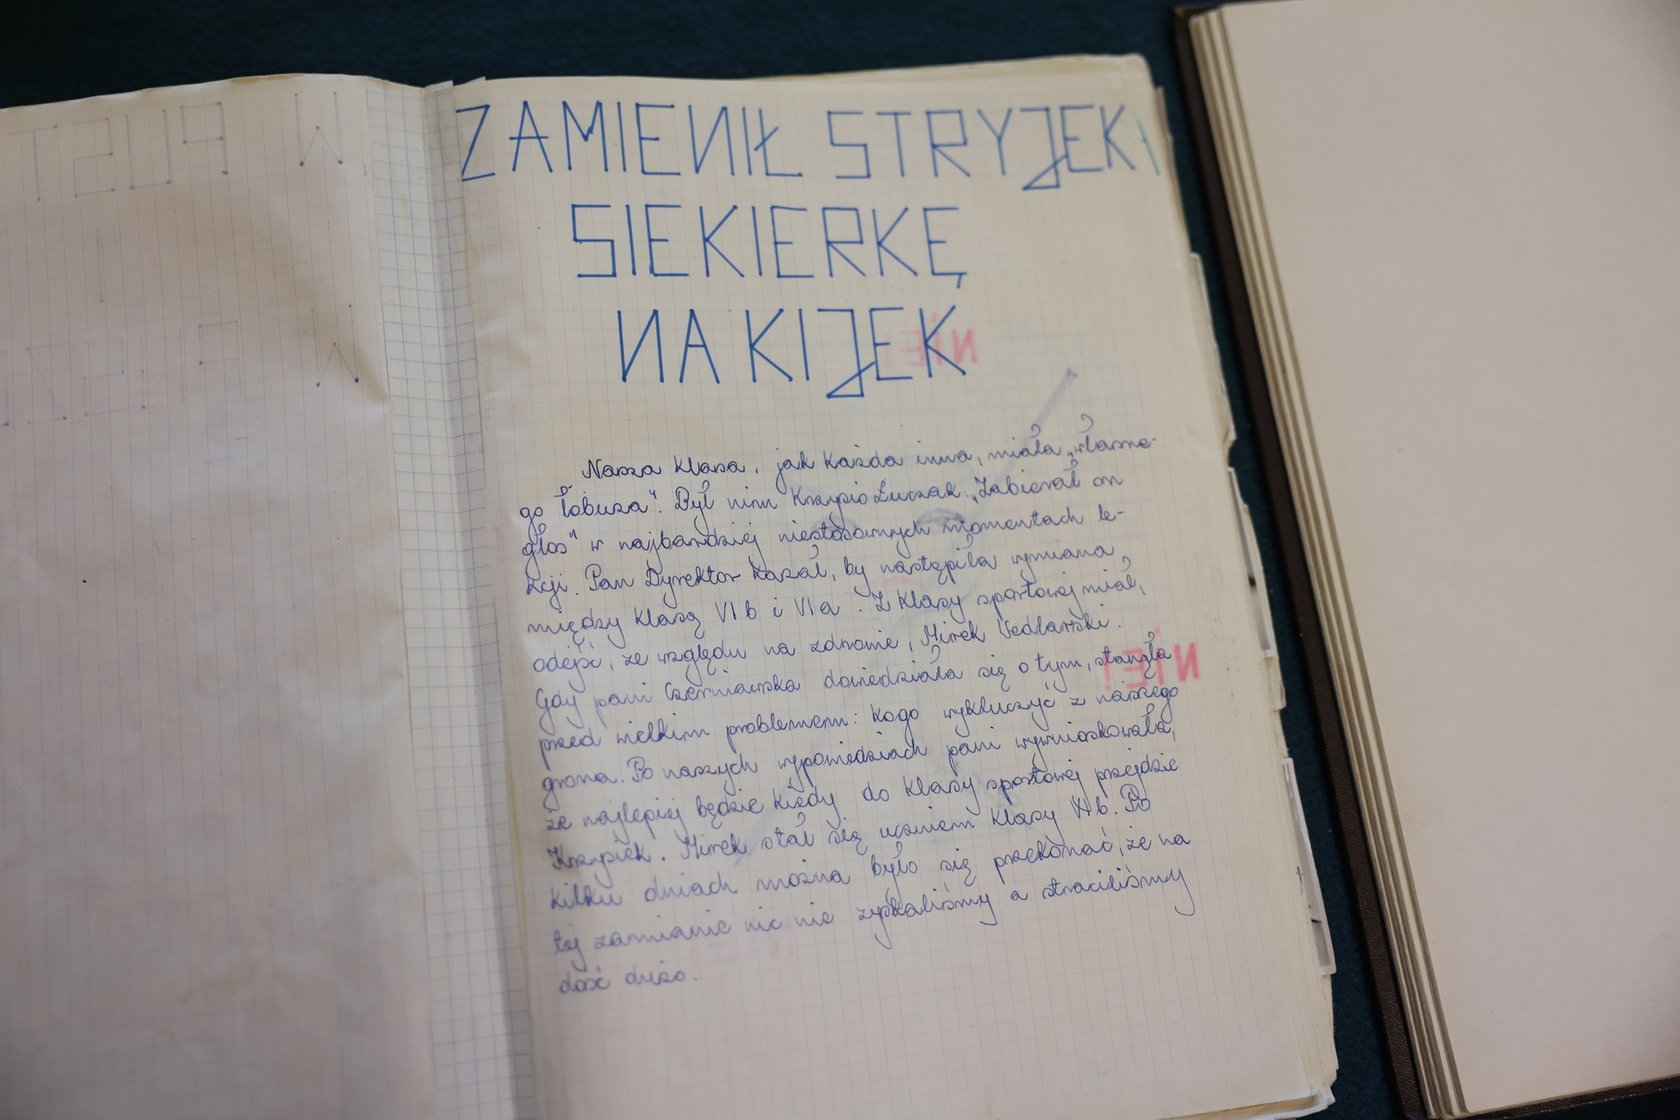 ZAMIENIŁ STRYJEK
SIEKIERKĘ
NA KIJEK
Nasza klasa, jak każda inna, miała „własne-
go łobuza". Był nim Krzysio Łuczak. „Zabierał on
głos" w najbardziej niestosownych momentach le-
kcji. Pan Dyrektor kazał, by nastąpiła wymiana
między klasą VI b i VI a. Z klasy sportowej miał,
odejść, ze względu na zdrowie, Mirek
Gdy pani Czerniawska dowiedziała się o tym, stanęła
przed wielkim problemem: kogo wykluczyć z naszego
grona. Po naszych wypowiedziach pani wywnioskowała,
że najlepiej będzie kiedy do klasy sportowej przejdzie
Krzysiek. Mirek stał się uczniem klasy VI b. Po
kilku dniach można było się przekonać, że na
tej zamianie nic nie zyskaliśmy a straciliśmy
dość dużo.
NIE!
NIE!